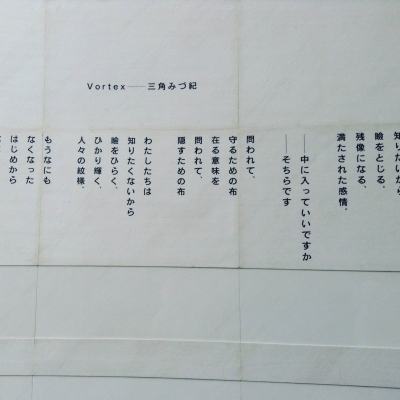 Vortex――三角みづ紀
知りたいから
瞼をとじる、
残像になる、
満たされた感情、
――中に入っていいですか
――そちらです
問われて、
守るための布
在る意味を
問われて、
隠すための布
わたしたちは
知りたくないから
瞼をひらく、
ひかり輝く、
人々の紋様、
もうなにも
なくなった
はじめから